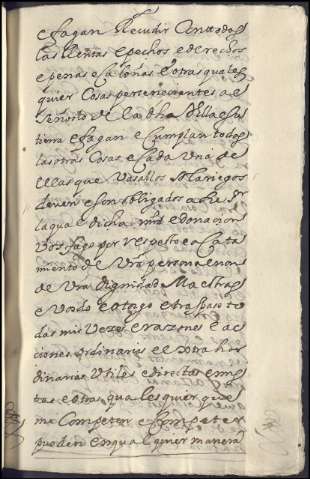 e fagan Recudir con todas
las Rentas e pechos e derechos
e penas e caloñas e otras quales
quier Cosas pertenecientes a el
Señorio de la dha Villa e su
tierra e fagan e Cumplan todas
las otras Cosas e Cada Una de
ellas que Vasallos Solariegos
deven e son obligados a
la qual dicha mrd e donacion
Vos fago por respecto e aCata
miento de Vra persona e non
de Vra Dignidad Maestral
e Vos do e otorgo e traspaso to
das mis Vezes e razones e ac
ciones ordinarias e extrahor
dinarias Utiles e directas e mix
tas e otras quales quier que
me Competen e Competer
pueden en qualquier manera